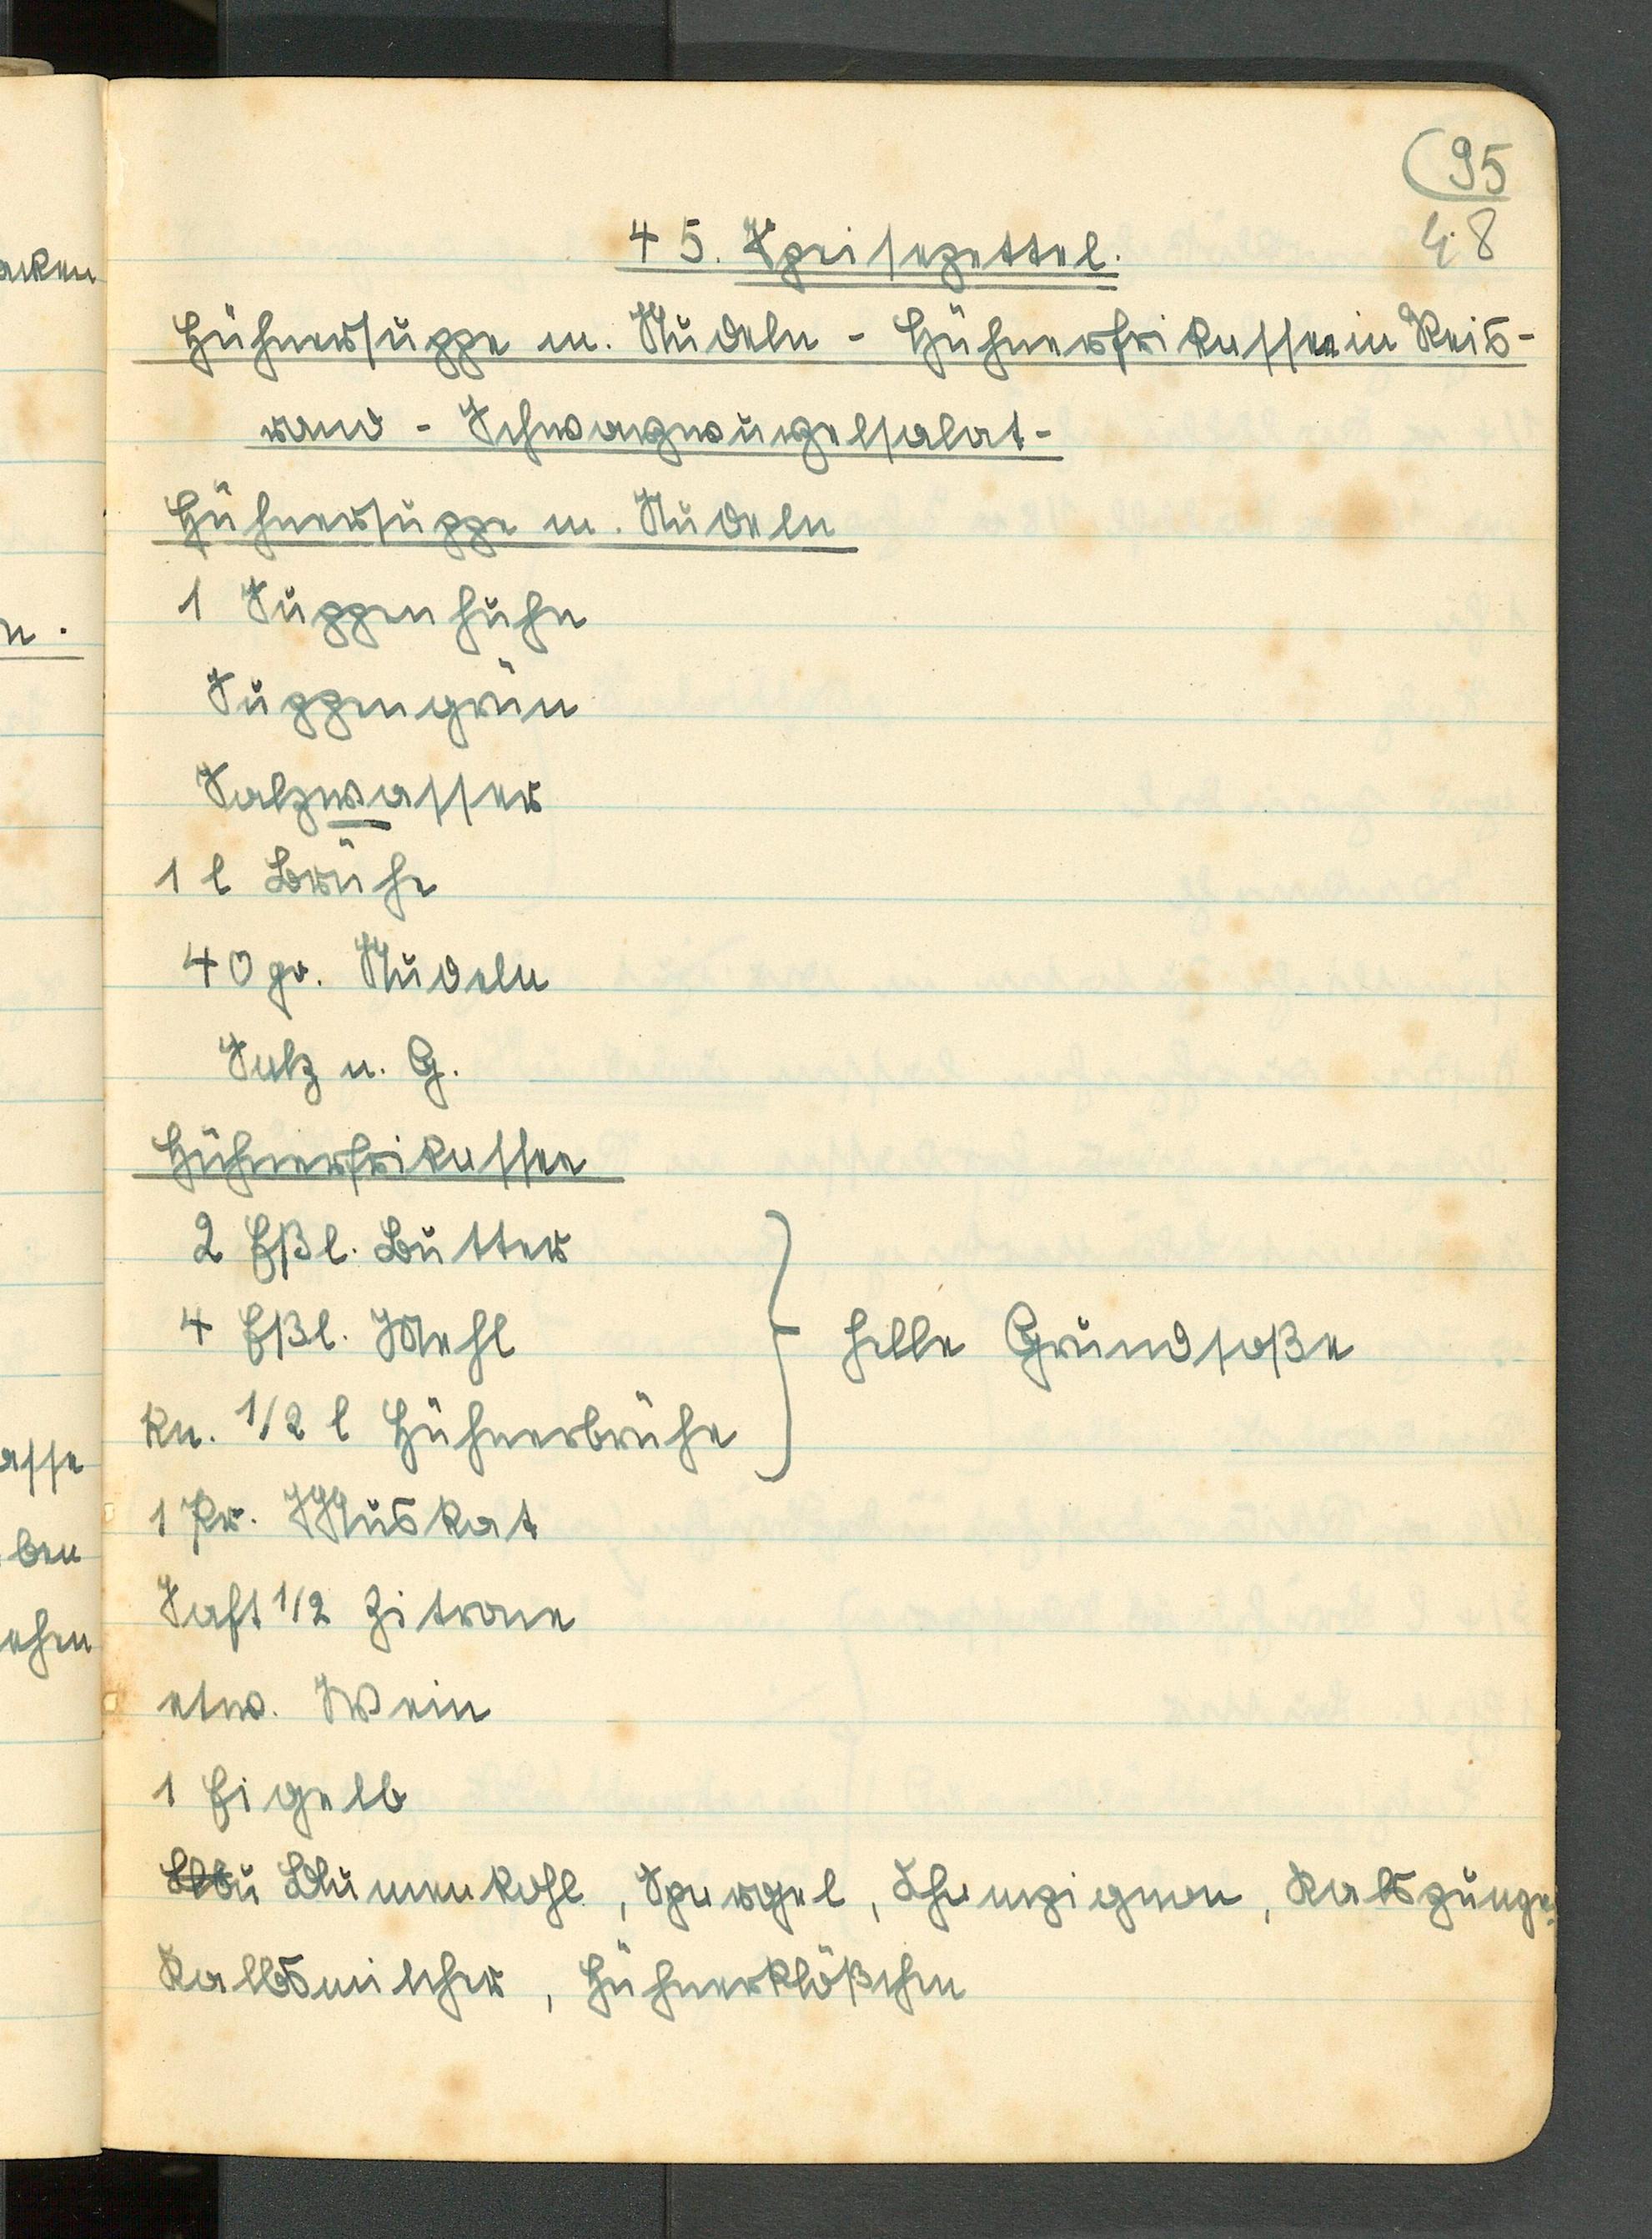 95
48
45. Speisezettel.
Hühnersuppe m. Nudeln - Hühnerfrikassee in Reis-
rand - Schwarzwurzelsalat -
Hühnersuppe m. Nudeln
1 Suppenhuhn
Suppengrün
Salzwasser
1 l Brühe
40 gr. Nudeln
Salz u. G.
Hühnerfrikassee
2 Eßl. Butter
4 Eßl. Mehl
helle Grundsoße
kn. 1/2 l Hühnerbrühe
1 Pr. Muskat
Saft 1/2 Zitrone
etw. Wein
1 Eigelb
Blumenkohl, Spargel, Champignon, Kalbszunge,
Kalbsmilcher, Hühnerklößchen